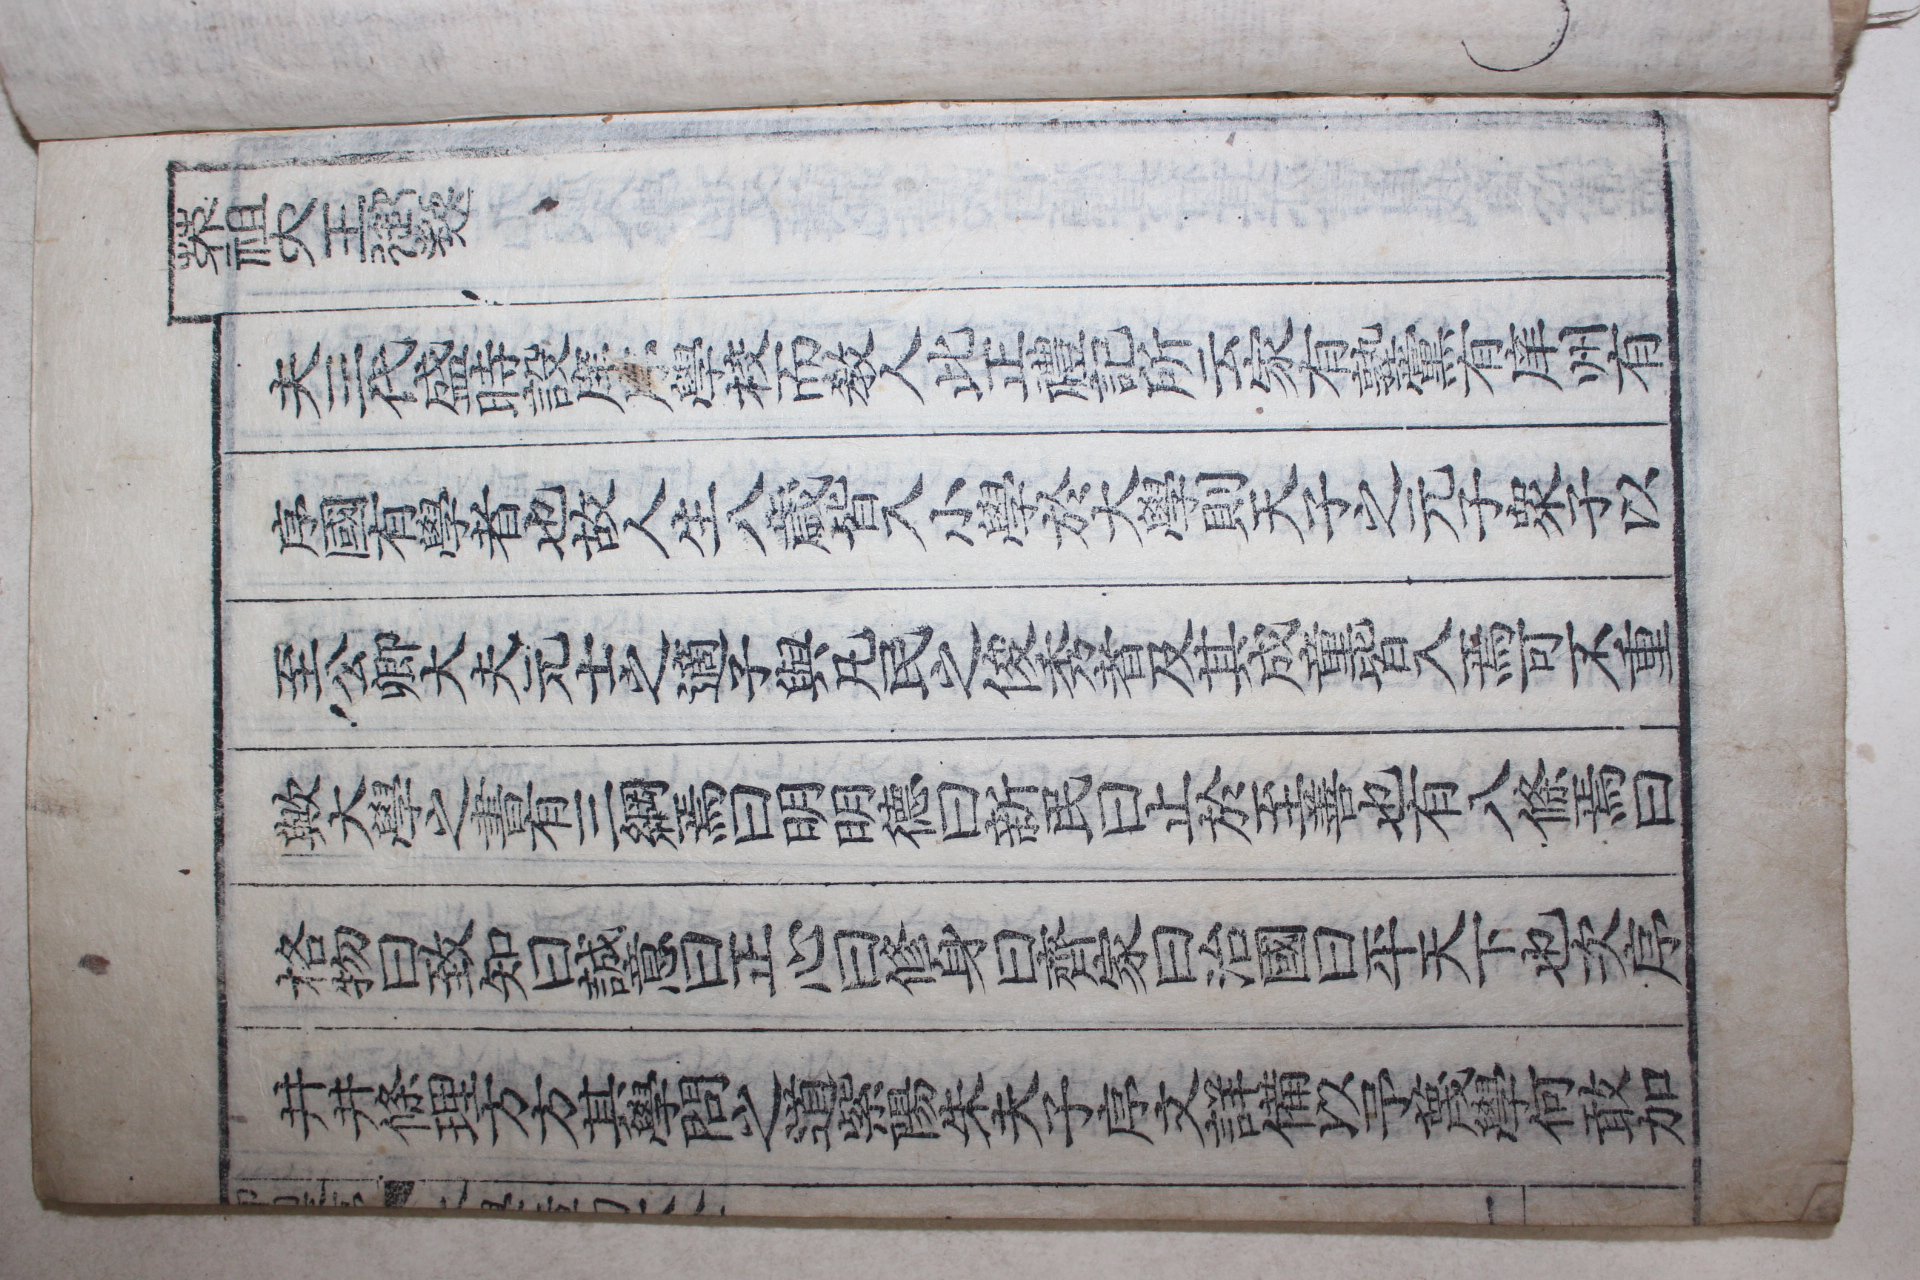 榮祖大王禦製
夫三代盛時設庠序學校而敎人此正禮記所云家有塾黨有庠州有
序國有學者也故人生八歲皆入小學於大學則天子之元子衆子以
至公卿大夫元士之適子與凡民之俊秀者及其成童皆入焉可不重
歟大學之書有三綱焉曰明明德曰新民曰止於至善也有八條焉曰
格物曰致知曰誠意曰正心曰修身曰齊家曰治國曰平天下也次序
井井條理方方其學問之道紫陽朱夫子序文詳備以予蔑學何敢加